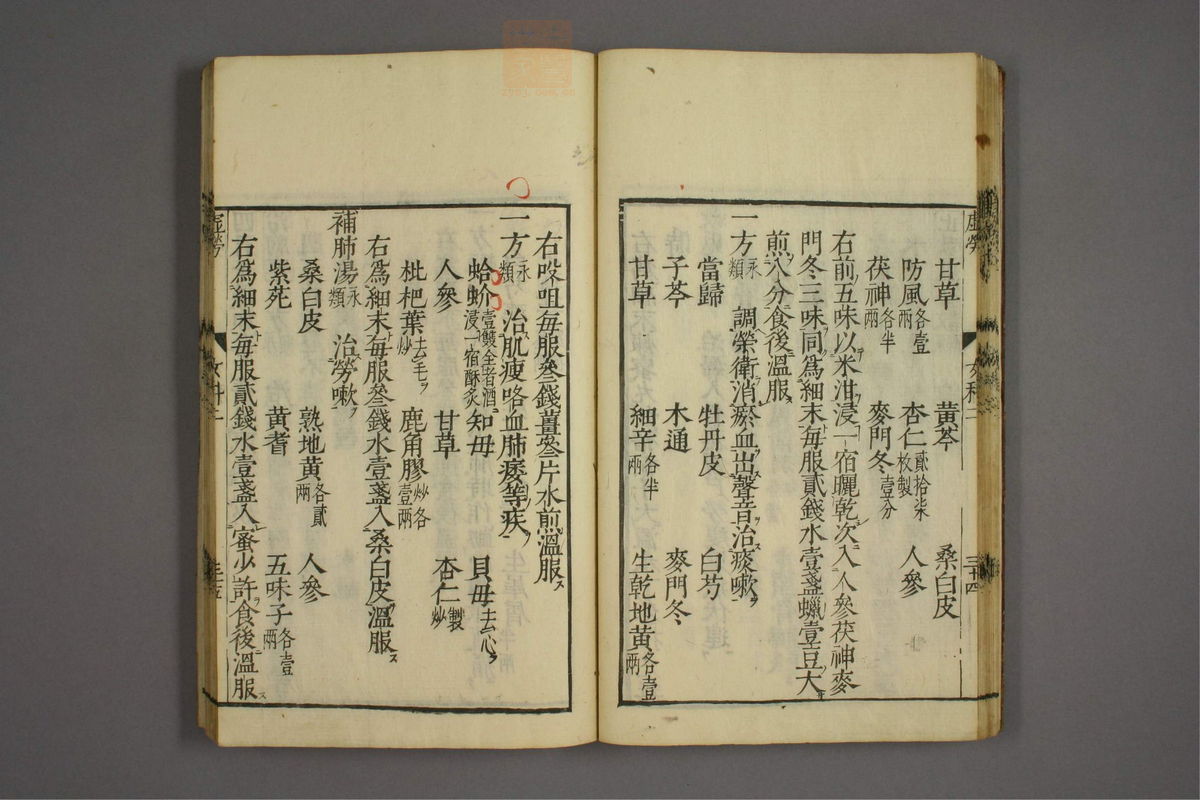 甘草 黄芩 桑白皮
防風各壹兩 杏仁貳拾柒枚製
茯神各半兩 麥門冬壹分 人參
右前五味以米泔浸一宿曬乾次入人參茯神麥
門冬三味同為細末毎服貳錢水壹盞蠟壹豆大
煎八分食後溫服
一方永類 調榮衛消瘀血出聲音治痰嗽
當歸 牡丹皮 白芍
子芩 木通 麥門冬
甘草 細辛各半兩 生乾地黄各壹兩
虚勞 女科二 三十四
右㕮咀毎服叄錢薑叄片水煎溫服
一方永類 治肌瘦咯血肺痿等疾
蛤蚧壹雙全者酒浸一宿酥炙 知母 貝母去心
人參 甘草 杏仁製炒
枇杷葉去毛炒 鹿角膠炒各壹兩
右為細末毎服叄錢水壹盞入桑白皮溫服
補肺湯永類 治勞嗽
桑白皮 熟地黄各貳兩 人參
紫菀 黄耆 五味子各壹兩
右爲細末毎服貳錢水壹盞入蜜少許食後溫服
虚勞 女科二 三十五